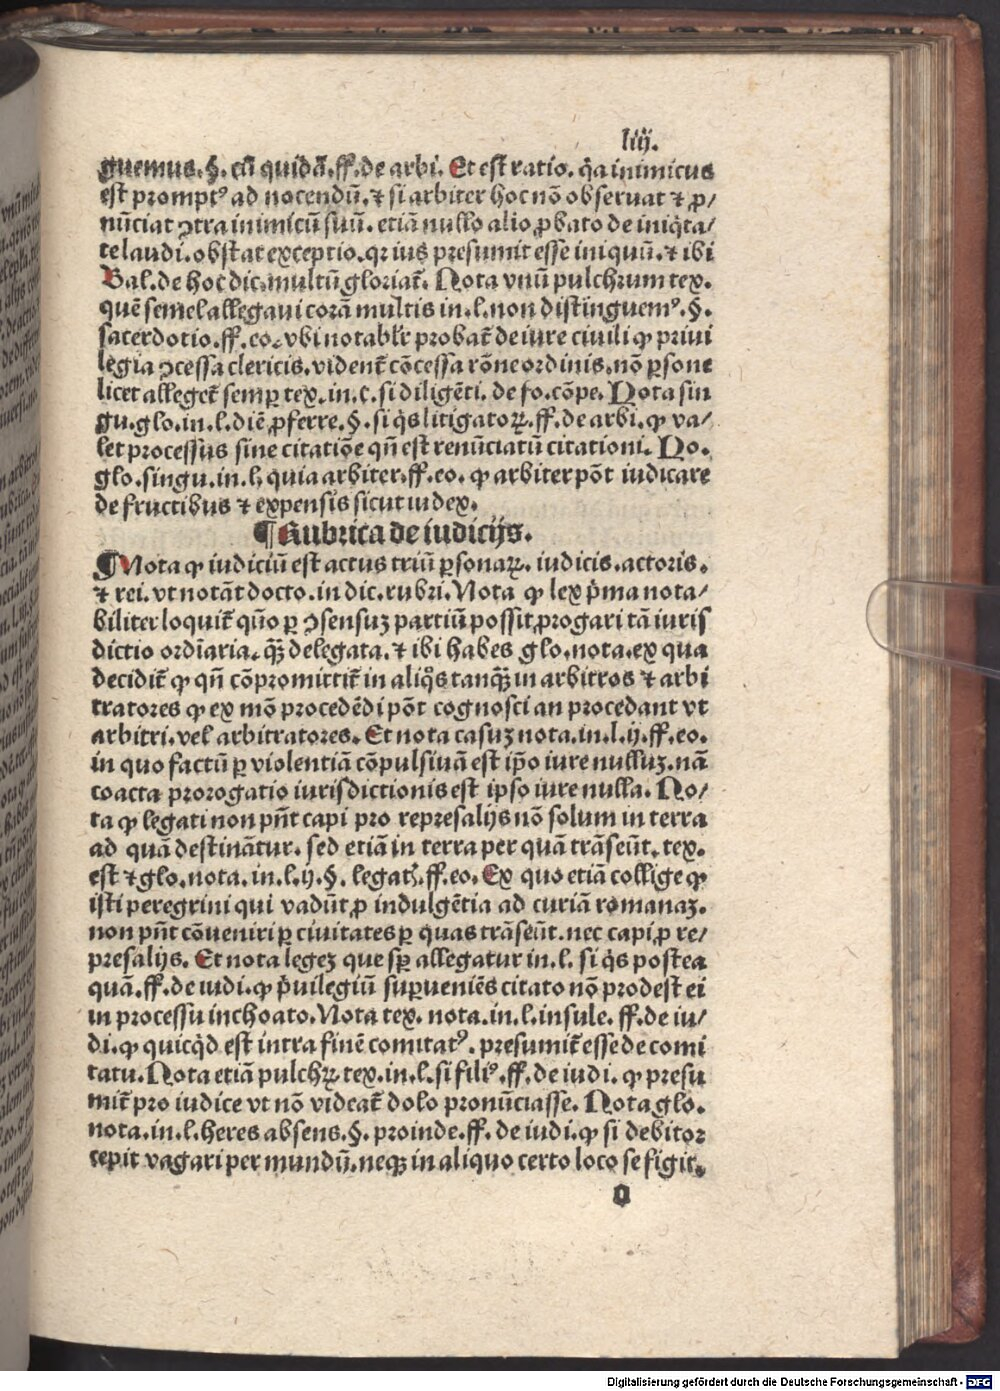 liij.
guemus. §. cū quidā. ff. de arbi. Et est ratio. q̄a inimicus
est prompt⁹ ad nocendū. ⁊ si arbiter hoc nō obseruat ⁊ ꝓ/
nūciat ꝯtra inimicū suū. etiā nullo alio ꝓbato de iniq̄ta/
te laudi. obstat exceptio. qꝛ ius presumit esse iniquū. ⁊ ibi
Bal. de hoc dic. multū gloriat̄. Nota vnū pulchrum tex.
quē semel allegaui corā multis in. l. non distinguem⁹. §.
sacerdotio. ff. eo. vbi notabl'r probat̄ de iure ciuili ꝙ priui
legia ꝯcessa clericis. vident̄ cōcessa rōne ordinis. nō ꝑsone
licet alleget̄ semꝑ tex. in. c. si diligēti. de fo. cōpe. Nota sin
gu. glo. in. l. diē ꝓferre. §. si q̄s litigatoꝝ. ff. de arbi. ꝙ va/
let processus sine citatiōe qn̄ est renūciatū citationi. No.
glo. singu. in. l. quia arbiter. ff. eo. ꝙ arbiter pōt iudicare
de fructibus ⁊ expensis sicut iudex.
¶ Rubrica de iudicijs.
¶ Nota ꝙ iudiciū est actus triū ꝑsonaꝝ. iudicis. actoris.
⁊ rei. vt notāt docto. in dic. rubri. Nota ꝙ lex p̄ma nota/
biliter loquit̄ quō ꝑ ꝯsensuꝫ partiū possit ꝓrogari tā iuris
dictio ordīaria. qꝫ̄ delegata. ⁊ ibi habes glo. nota. ex qua
decidit̄ ꝙ qn̄ cōpromittit̄ in aliq̄s tanqꝫ̄ in arbitros ⁊ arbi
tratores ꝙ ex mō procedēdi pōt cognosci an procedant vt
arbitri. vel arbitratores. Et nota casuꝫ nota. in. l. ij. ff. eo.
in quo factū ꝑ violentiā cōpulsiuā est ip̄o iure nulluꝫ. nā
coacta prorogatio iurisdictionis est ipso iure nulla. No/
ta ꝙ legati non pn̄t capi pro represalijs nō solum in terra
ad quā destinātur. sed etiā in terra per quā trāseūt. tex.
est ⁊ glo. nota. in. l. ij. §. legat̄. ff. eo. Ex quo etiā collige ꝙ
isti peregrini qui vadūt ꝓ indulgētia ad curiā romanaꝫ.
non pn̄t cōueniri ꝑ ciuitates ꝑ quas trāseūt. nec capi ꝓ re/
presalijs. Et nota legeꝫ que sꝑ allegatur in. l. si q̄s postea
quā. ff. de iudi. ꝙ p̄uilegiū suꝑueniēs citato nō prodest ei
in processu inchoato. Nota tex. nota. in. l. insule. ff. de iu/
di. ꝙ quicq̄d est intra finē comitat⁹. presumit̄ esse de comi
tatu. Nota etiā pulchꝝ tex. in. l. si fili⁹. ff. de iudi. ꝙ presu
mit̄ pro iudice vt nō videat̄ dolo pronūciasse. Nota glo.
nota. in. l. heres absens. §. proinde. ff. de iudi. ꝙ si debitor
cepit vagari per mundū. neqꝫ in aliquo certo loco se figit.
Digitalisierung gefördert durch die Deutsche Forschungsgemeinschaft - DFG